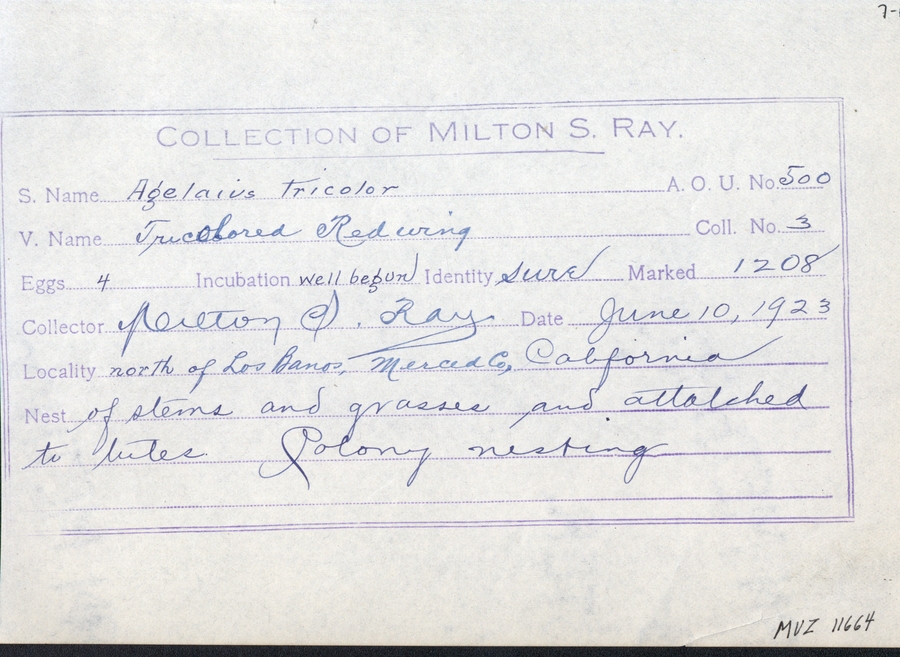 7-
COLLECTION OF MILTON S. RAY.
S. Name Agelaius tricolor A. O. U. No. 500
V. Name Tricolored Redwing Coll. No. 3
Eggs 4 Incubation well begun Identity sure Marked 1208
Collector Milton S. Ray Date June 10, 1923
Locality north of Los Banos, Merced Co, California
Nest of stems and grasses and attatched
to tules. Colony nesting
MVZ 11664